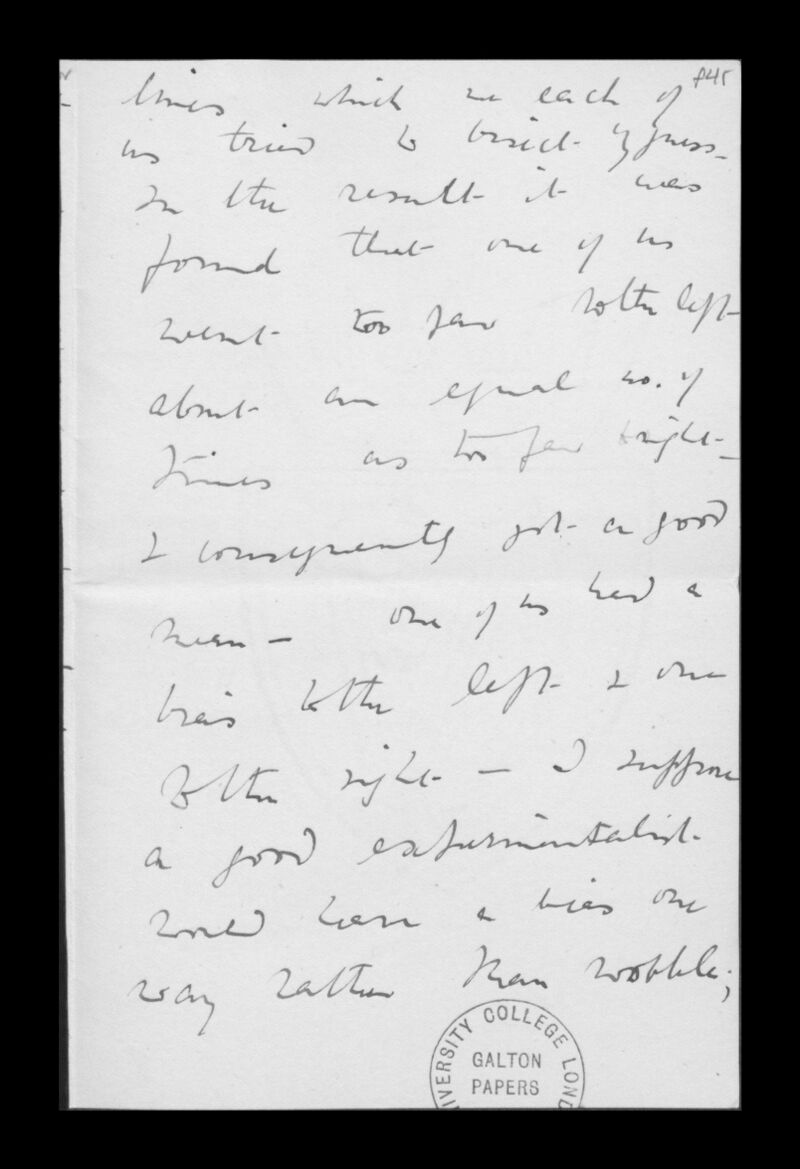 P45
lines which we each of
us tried to bisect by guess -
In the result it was
found that one of us
went too far to the left
about an equal no. of
times as too far right -
& consequently got a good
mean - one of us had a
bias to the left & one
to the right - I suppose
a good experimentalist
would have a bias one
way rather than wobble;
UNIVERSITY COLLEGE LOND
GALTON
PAPERS